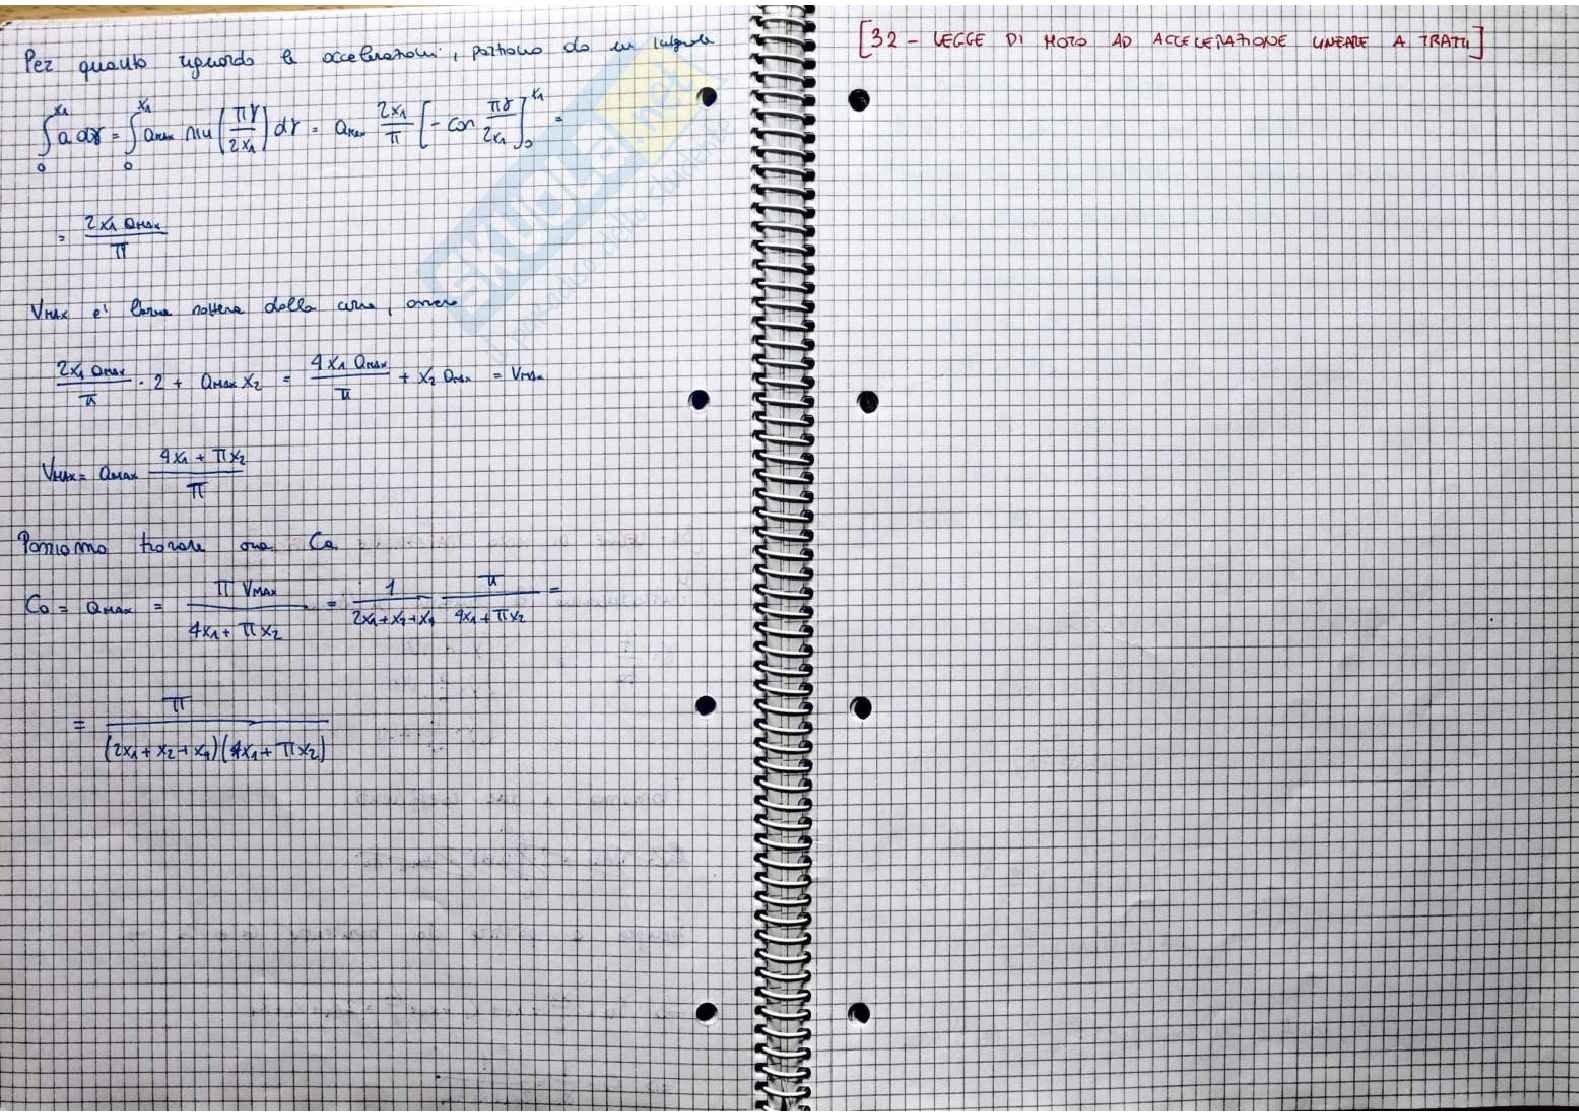 Per quanto riguarda le accelerazioni, partiamo da un integrale
∫₀^x₁ a dγ = ∫₀^x₁ a_max sin(πγ/2x₁) dγ = a_max 2x₁/π [-cos πγ/2x₁]₀^x₁ =
= 2x₁ a_max/π
V_MAX e' l'area della curva, ovvero
2x₁ a_max/π · 2 + a_max x₂ = 4x₁ a_max/π + x₂ a_max = V_max
V_MAX = a_MAX 4x₁ + πx₂/π
Possiamo trovare ora Ca
Ca = a_MAX = π V_MAX/4x₁ + πx₂ = 1/2x₁+x₂+x₄ π/4x₁+πx₂ =
= π/(2x₁+x₂+x₄)(4x₁+πx₂)
[32 - LEGGE DI MOTO AD ACCELERAZIONE LINEARE A TRATTI]
SKUOLA.net
il paradiso dello studente